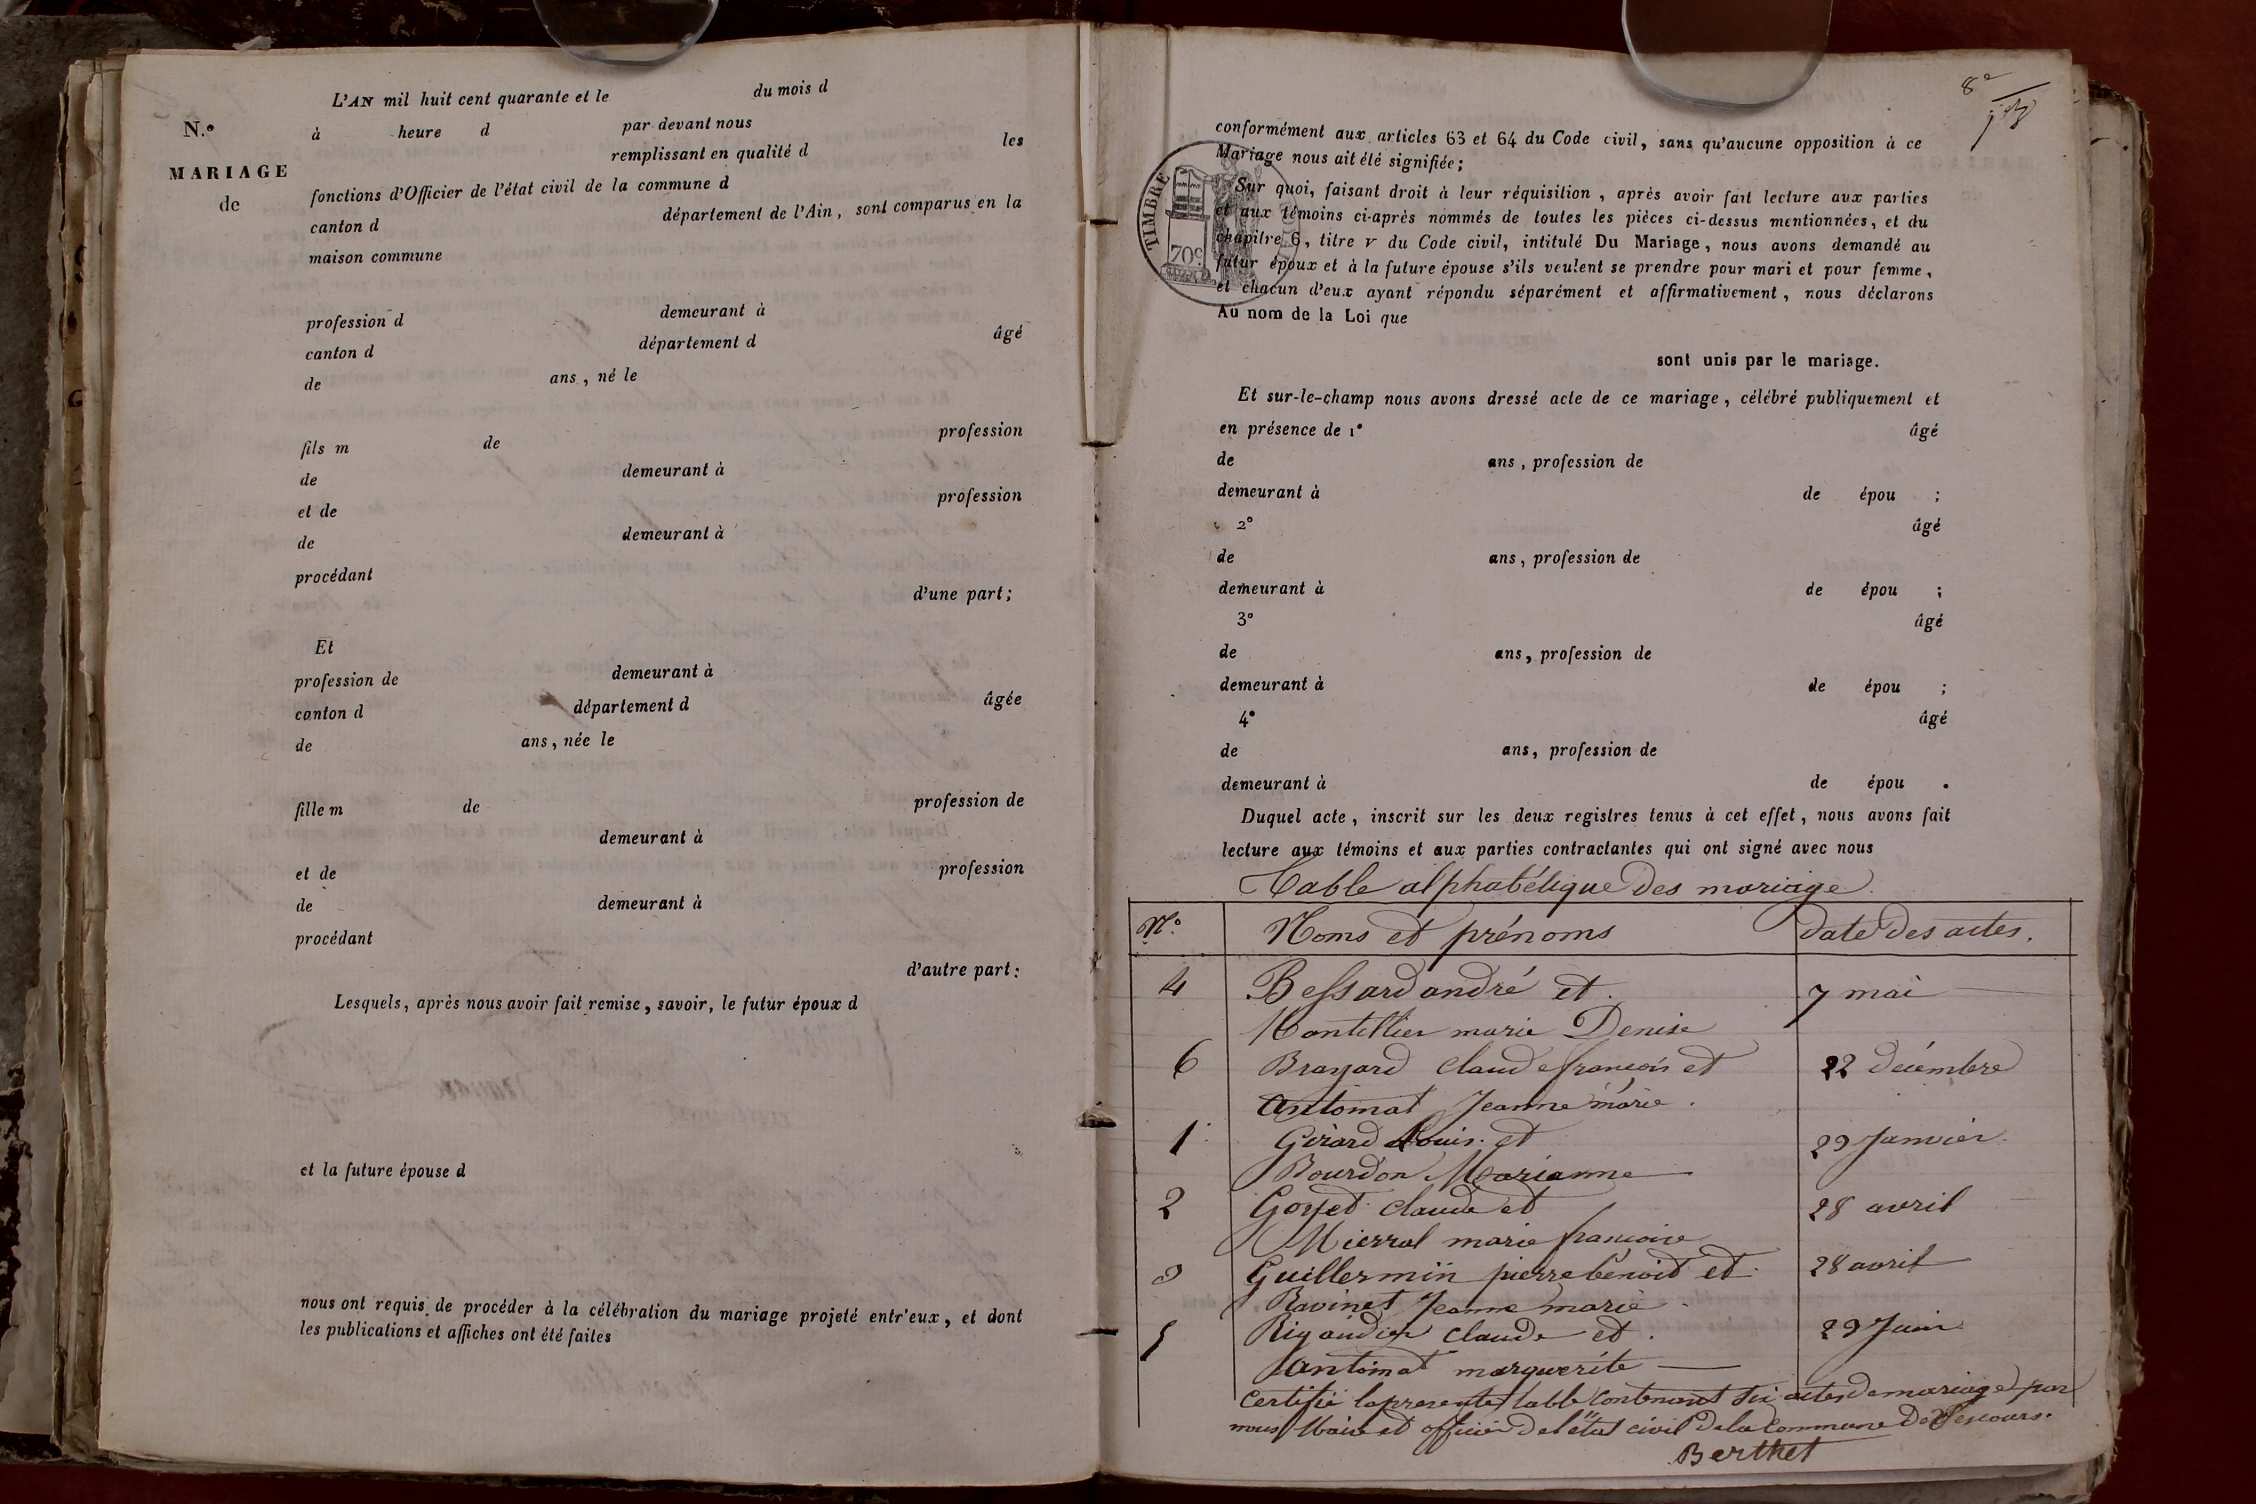 L'AN mil huit cent quarante et le du mois d
N.o à heure d par devant nous
remplissant en qualité d les
MARIAGE
de
fonctions d'Officier de l'état civil de la commune d
canton d département de l'Ain, sont comparus en la
maison commune
profession d demeurant à
canton d département d âgé
de ans, né le
fils m de profession
de demeurant à
et de profession
de demeurant à
procédant
d'une part;
Et
profession de demeurant à
canton d département d âgée
de ans, née le
fille m de profession de
demeurant à
et de profession
de demeurant à
procédant
d'autre part:
Lesquels, après nous avoir fait remise, savoir, le futur époux d
et la future épouse d
nous ont requis de procéder à la célébration du mariage projeté entr'eux, et dont
les publications et affiches ont été faites
8e
conformément aux articles 63 et 64 du Code civil, sans qu'aucune opposition à ce
Mariage nous ait été signifiée;
Sur quoi, faisant droit à leur réquisition, après avoir fait lecture aux parties
et aux témoins ci-après nommés de toutes les pièces ci-dessus mentionnées, et du
chapitre 6, titre v du Code civil, intitulé Du Mariage, nous avons demandé au
futur époux et à la future épouse s'ils veulent se prendre pour mari et pour femme,
et chacun d'eux ayant répondu séparément et affirmativement, nous déclarons
Au nom de la Loi que
TIMBRE
70c
sont unis par le mariage.
Et sur-le-champ nous avons dressé acte de ce mariage, célébré publiquement et
en présence de 1° âgé
de ans, profession de
demeurant à de épou ;
2° âgé
de ans, profession de
demeurant à de épou ;
3° âgé
de ans, profession de
demeurant à de épou ;
4° âgé
de ans, profession de
demeurant à de épou .
Duquel acte, inscrit sur les deux registres tenus à cet effet, nous avons fait
lecture aux témoins et aux parties contractantes qui ont signé avec nous
Table alphabétique Des mariage
No. Noms et prénoms date Des actes.
4 Bessard andré et 7 mai
Montillier marie Denise
6 Brayard Claude françois et 22 décémbre
antoinat Jeanne marie.
1 Girard Louis et 29 Janvier
Bourdon Marianne
2 Goyet Claude et 28 avril
Mierral marie francoise
3 Guillermin pierre benoit et 28 avril
Ravinet Jeanne marie
5 Rigaudier Claude et 29 Juin
antoinat marguerite
Certifié la presente table Contenant Six actes de mariage par
nous Maire et officier De l'état civil De la Commune De Lescours.
Berthet